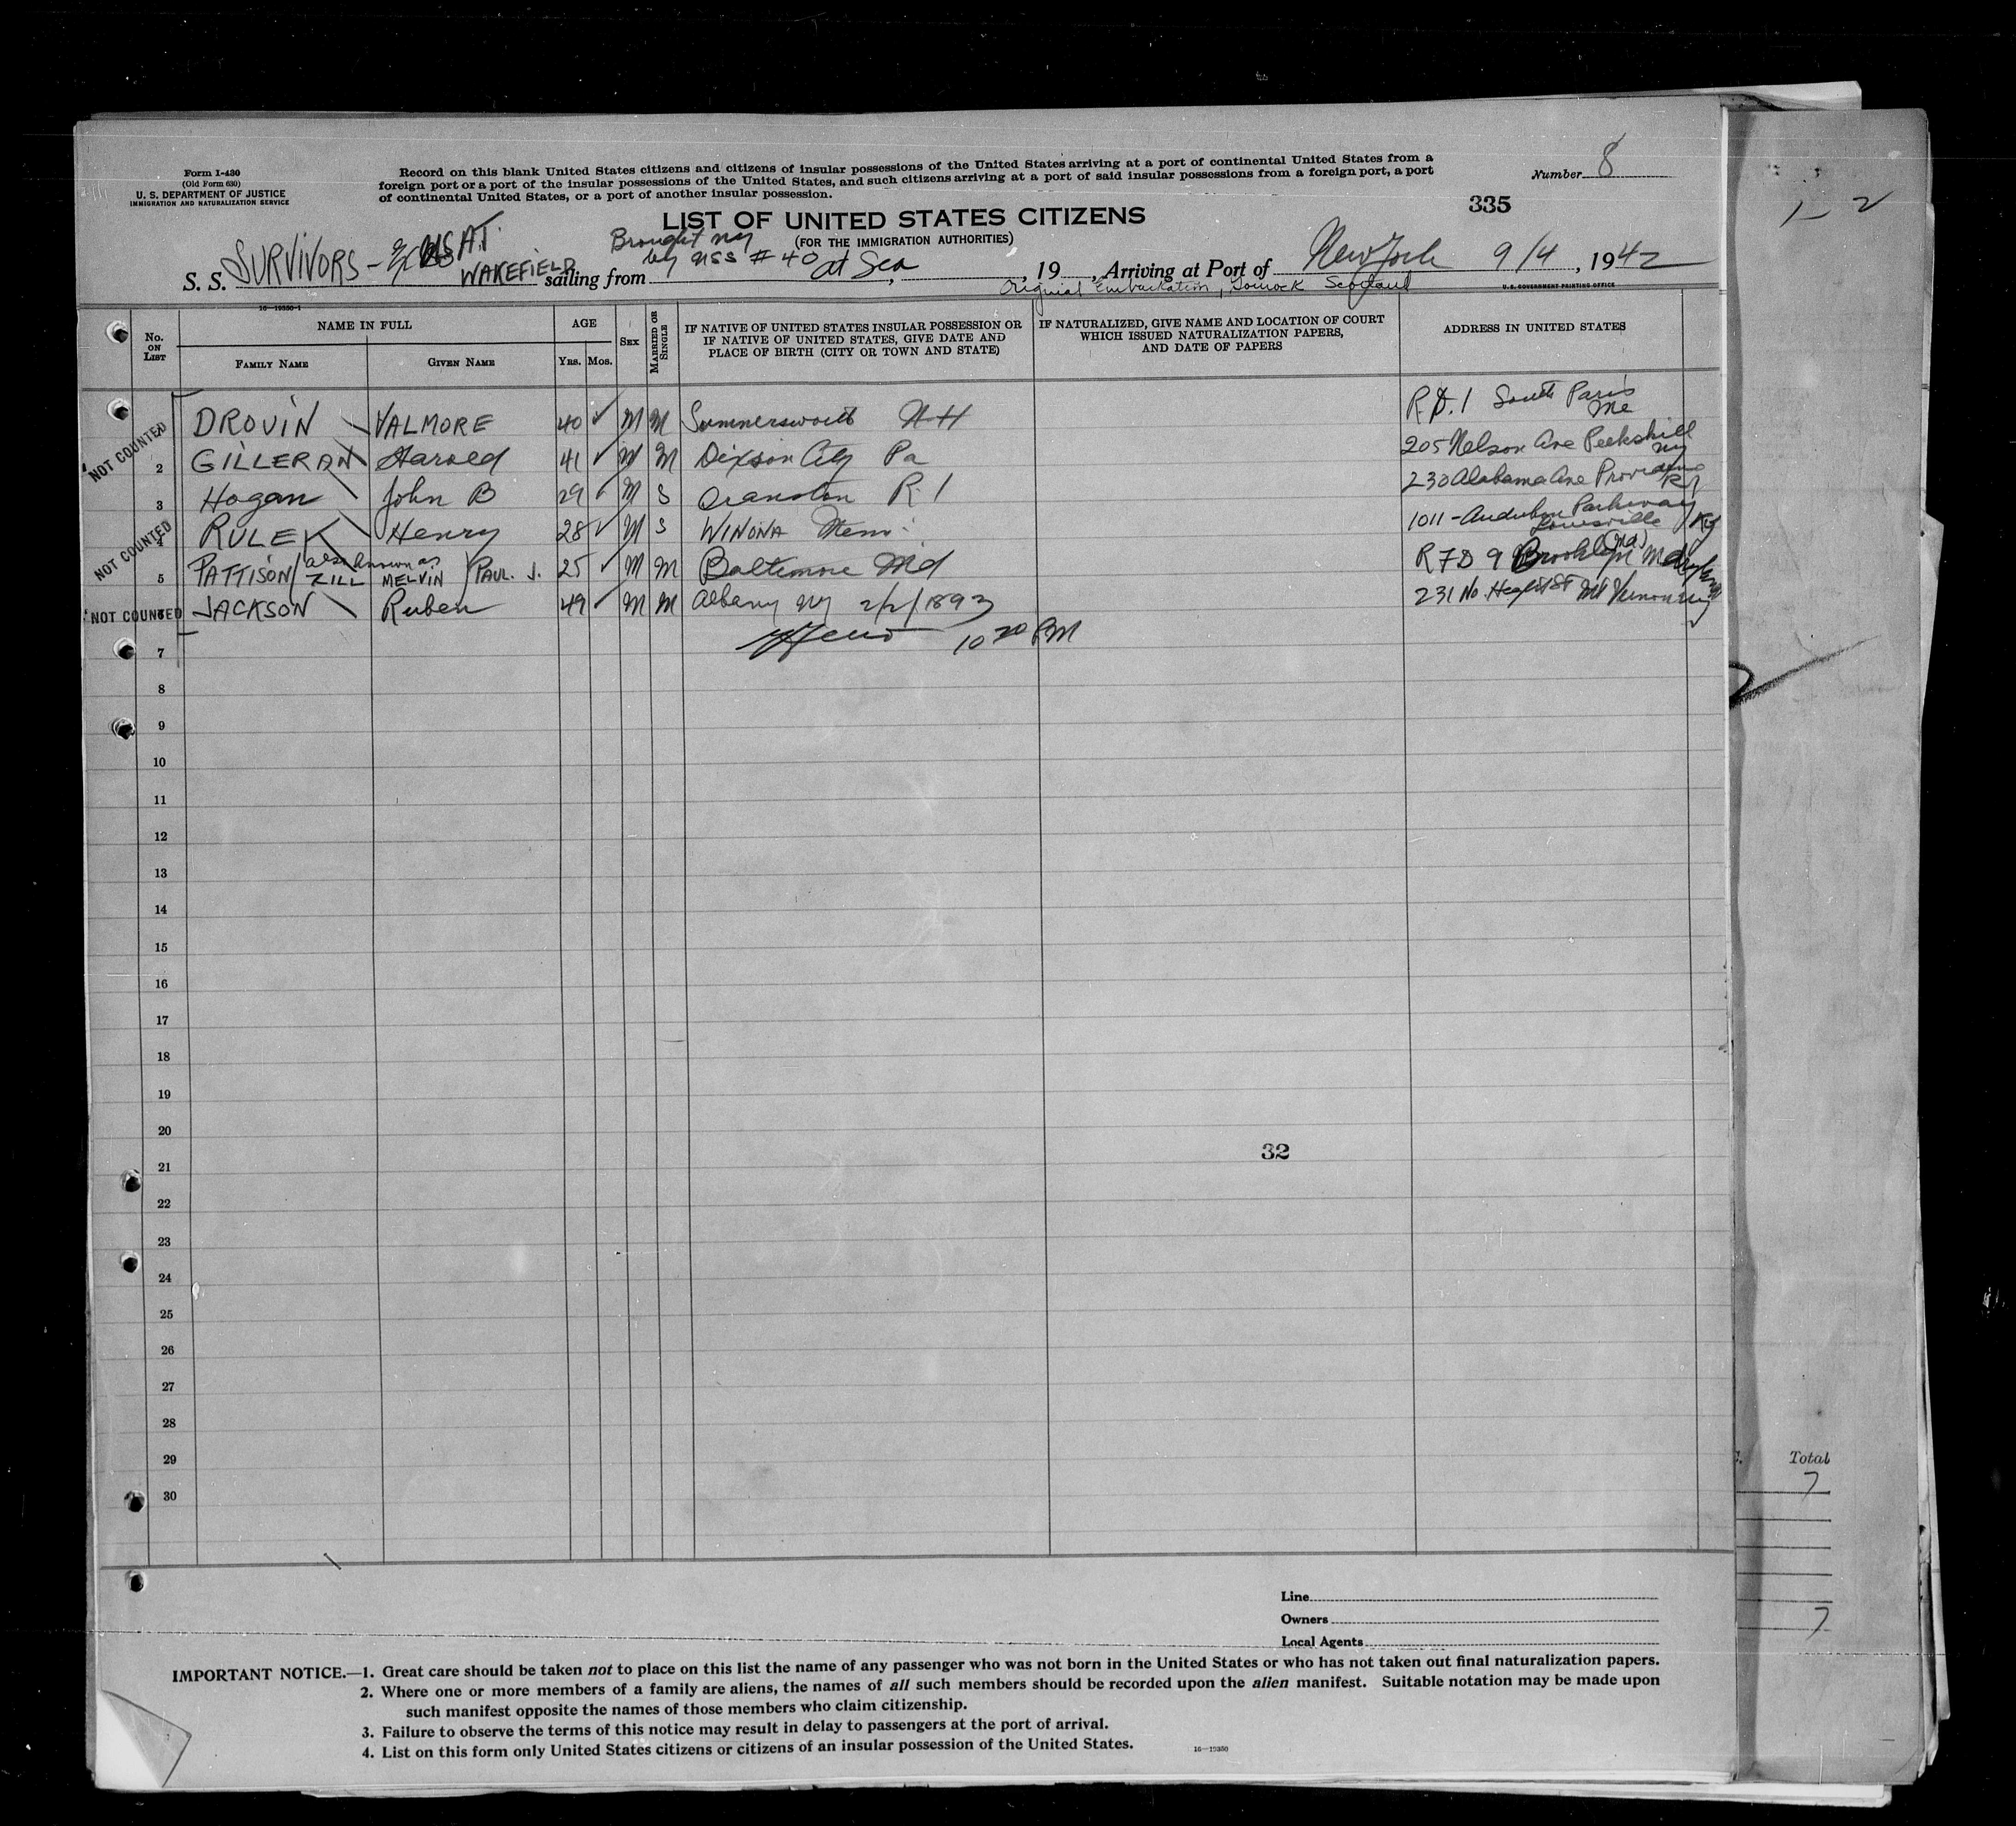 Form I-430
(Old Form 630)
U. S. DEPARTMENT OF JUSTICE
IMMIGRATION AND NATURALIZATION SERVICE
Record on this blank United States citizens and citizens of insular possessions of the United States arriving at a port of continental United States from a
foreign port or a port of the insular possessions of the United States, and such citizens arriving at a port of said insular possessions from a foreign port, a port
of continental United States, or a port of another insular possession.
Number 8
335
LIST OF UNITED STATES CITIZENS
(FOR THE IMMIGRATION AUTHORITIES)
Brought NY
by USS # 40
S. S. SURVIVORS - USAT. WAKEFIELD sailing from at Sea, 19 , Arriving at Port of New York 9/4, 1942
Original Embarkation, Gourock Scotland
U. S. GOVERNMENT PRINTING OFFICE
16-19350-1
No. ON LIST
NAME IN FULL
FAMILY NAME
GIVEN NAME
AGE
YRS. MOS.
SEX
MARRIED OR SINGLE
IF NATIVE OF UNITED STATES INSULAR POSSESSION OR
IF NATIVE OF UNITED STATES, GIVE DATE AND
PLACE OF BIRTH (CITY OR TOWN AND STATE)
IF NATURALIZED, GIVE NAME AND LOCATION OF COURT
WHICH ISSUED NATURALIZATION PAPERS,
AND DATE OF PAPERS
ADDRESS IN UNITED STATES
NOT COUNTED
DROUIN VALMORE 40 M M Sumersworth NH R.D. 1 South Paris Me
2 GILLERAN Harold 41 M M Dixson City Pa 205 Nelson Ave Peekskill NY
3 Hogan John B 29 M S Cranston R.I 230 Alabama Ave Providence RI
NOT COUNTED
4 RULEK Henry 28 M S WINONA Minn 1011 - Audubon Parkway Louisville Ky
5 PATTISON / also known as ZILL MELVIN / PAUL. J. 25 M M Baltimore Md RFD 9 Brooklyn (Md) Maryland
NOT COUNTED
6 JACKSON Ruben 49 M M Albany NY 2/2/1893 231 No. St Mt Vernon NY
10 20 PM
7
8
9
10
11
12
13
14
15
16
17
18
19
20
21
22
23
24
25
26
27
28
29
30
32
Line
Owners
Local Agents
IMPORTANT NOTICE.—1. Great care should be taken not to place on this list the name of any passenger who was not born in the United States or who has not taken out final naturalization papers.
2. Where one or more members of a family are aliens, the names of all such members should be recorded upon the alien manifest. Suitable notation may be made upon
such manifest opposite the names of those members who claim citizenship.
3. Failure to observe the terms of this notice may result in delay to passengers at the port of arrival.
4. List on this form only United States citizens or citizens of an insular possession of the United States.
16-19350
1-2
Total
7
7